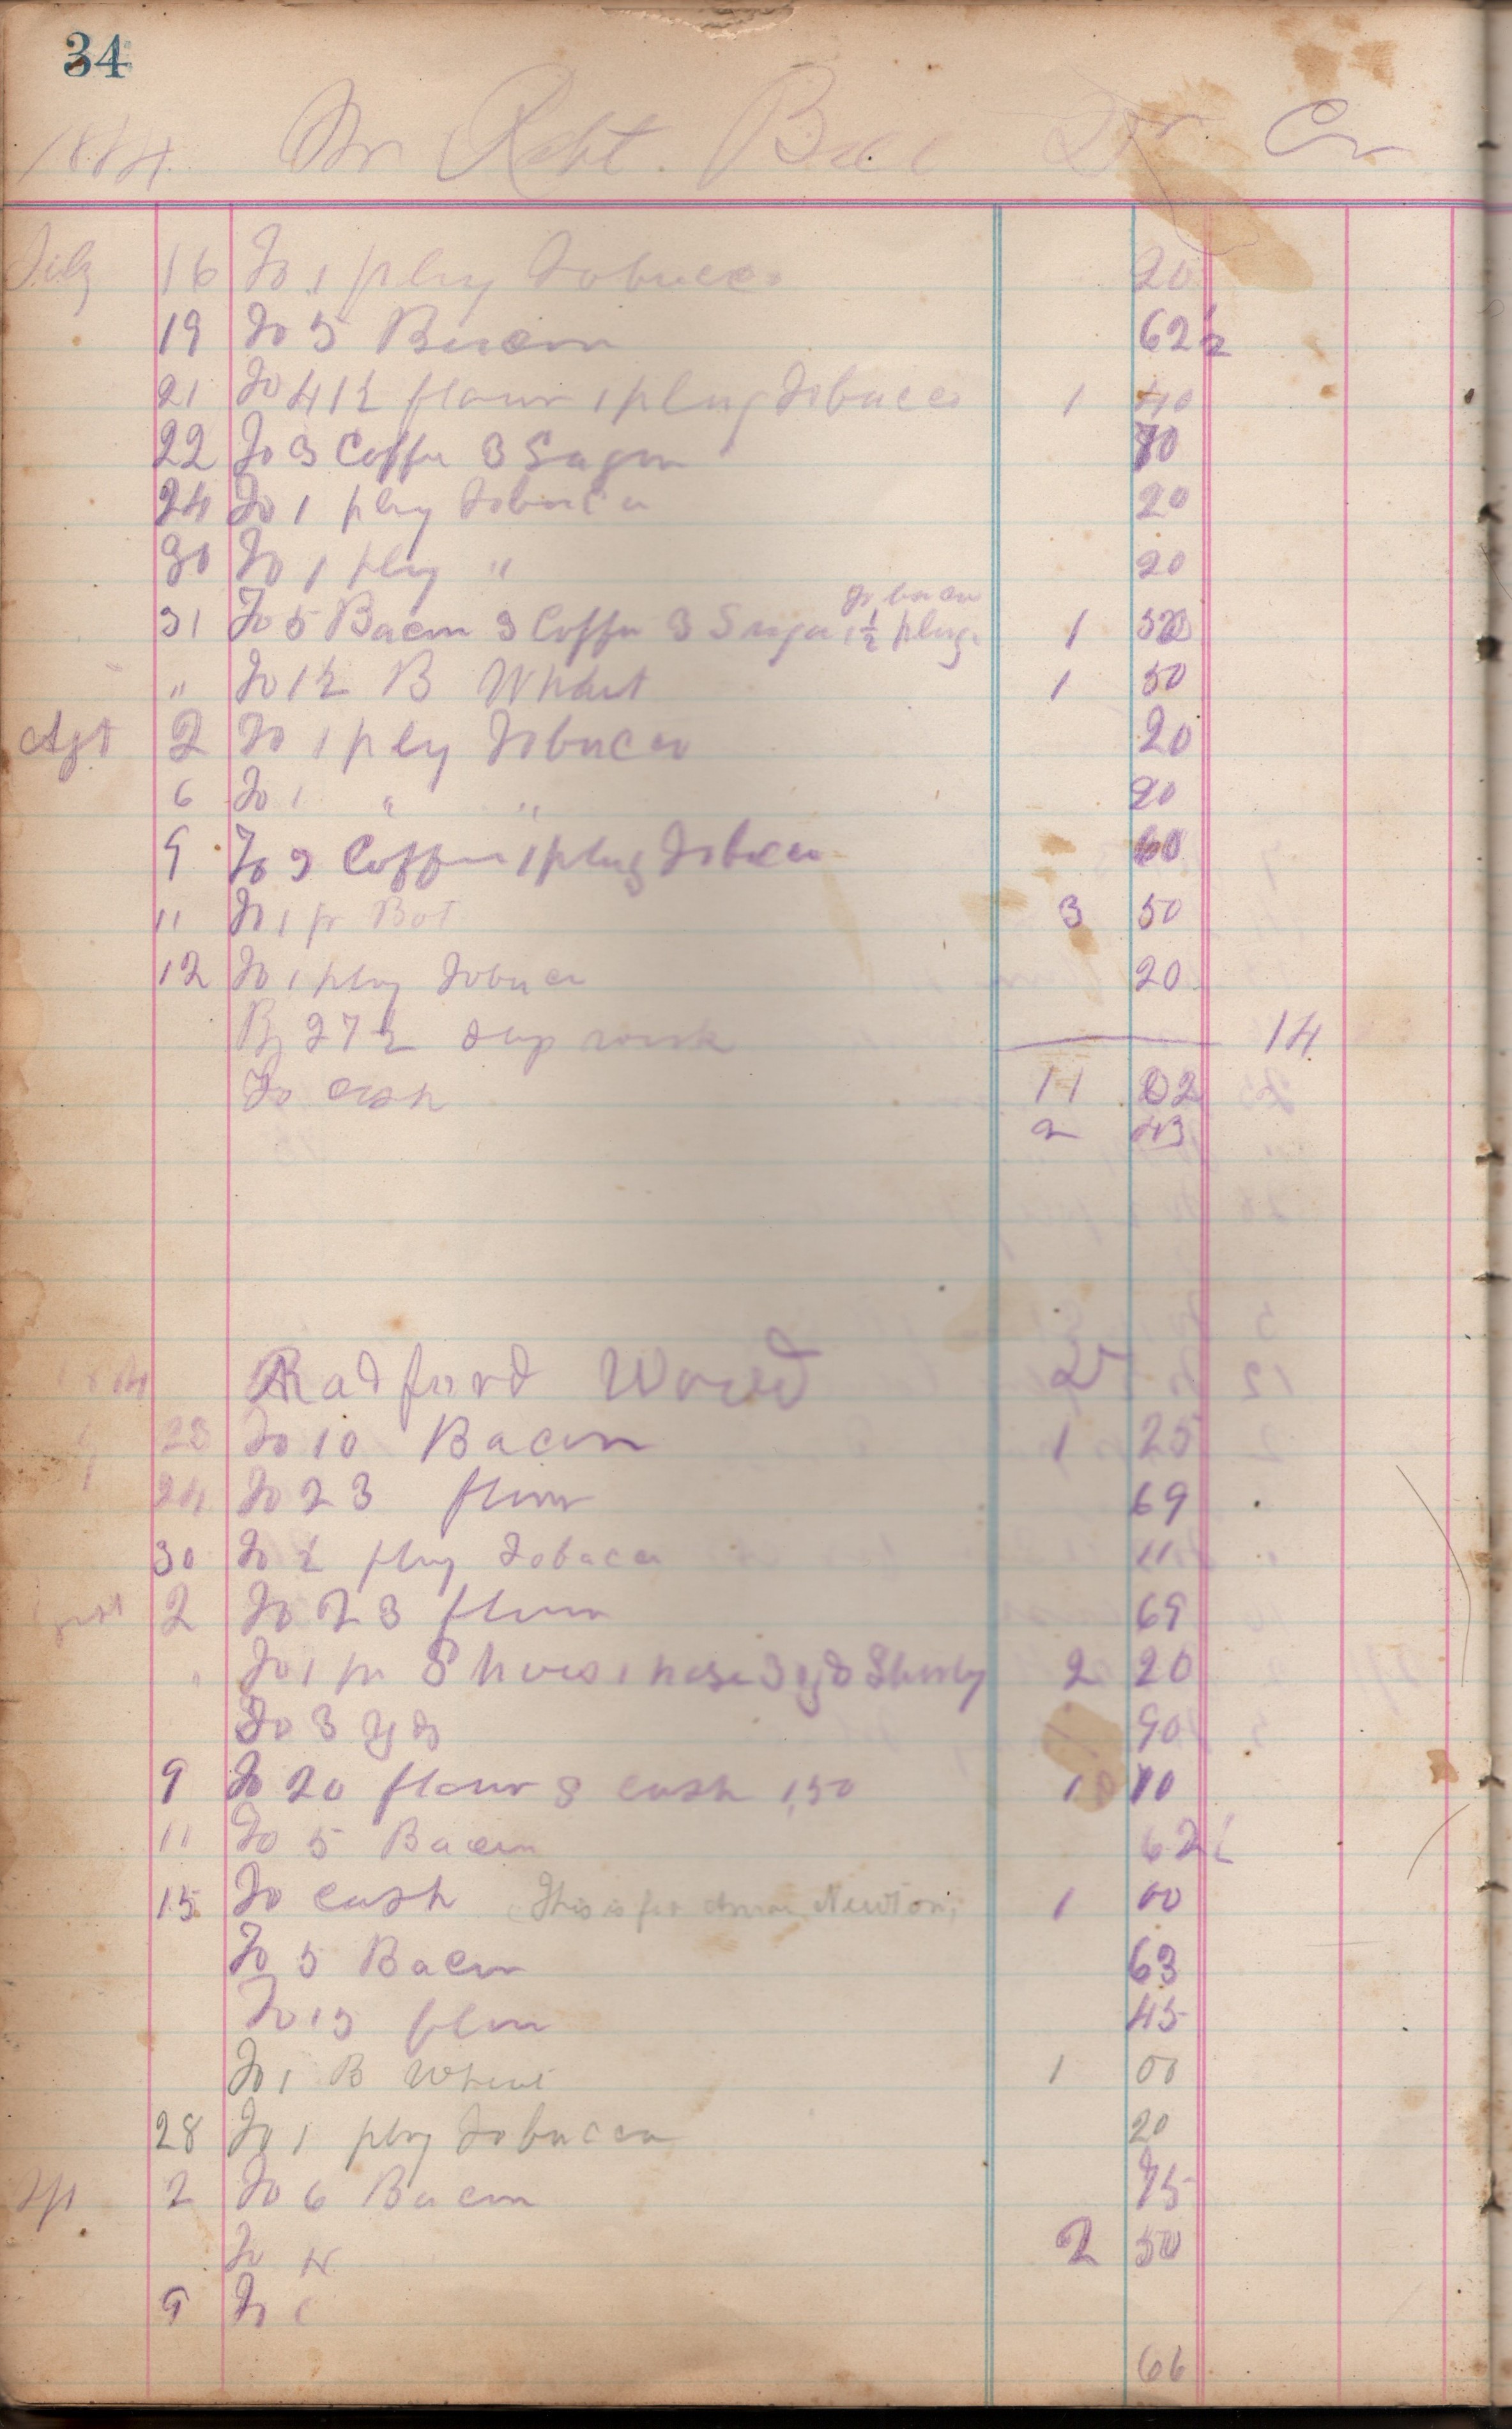 34
1884 Mr Robt. Bell Dr Cr
July 16 To 1 plug Tobacco 20
19 To 5 Bacon 62½
21 To 41½ flour 1 plug Tobacco 1 40
22 To 3 Coffee 3 Sugar 70
24 To 1 plug Tobacco 20
30 To 1 plug " 20
Tobacco
31 To 5 Bacon 3 Coffee 3 Sugar 1½ plugs 1
" To 1½ B Wheat 1 50
Agt 2 To 1 plug Tobacco 20
6 To 1 " " 20
9 To 3 Coffee 1 plug Tobacco 60
11 To 1 pr Bot 3 50
12 To 1 plug Tobacco 20
By 27½ days work 14
To cash 11 02
2 43
Radford Wood Dr
23 To 10 Bacon 1 25
24 To 23 flour 69
30 To ½ plug Tobacco 11
2 To 23 flour 69
" To 1 pr Shoes 1 hose 3 yds 2 20
To 3 yds 90
9 To 20 flour & cash 1,50 10
11 To 5 Bacon 62½
15 To cash (This is for Newton, 1 00
To 5 Bacon 63
To 15 flour 45
To 1 B Wheat 1 00
28 To 1 plug Tobacco 20
Sp 2 To 6 Bacon 75
To 2 50
9 To
66